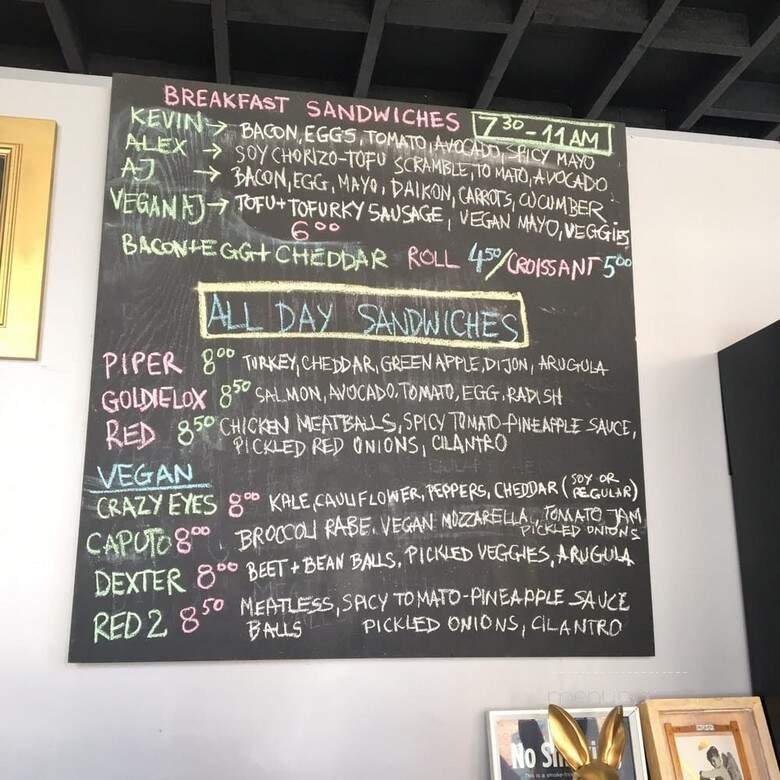 BREAKFAST SANDWICHES 7³⁰-11AM
KEVIN → BACON, EGGS, TOMATO, AVOCADO, SPICY MAYO
ALEX → SOY CHORIZO-TOFU SCRAMBLE, TOMATO, AVOCADO
AJ → BACON, EGG, MAYO, DAIKON, CARROTS, CUCUMBER
VEGAN AJ → TOFU+TOFURKY SAUSAGE, VEGAN MAYO, VEGGIES
6⁰⁰
BACON+EGG+CHEDDAR ROLL 4⁵⁰/CROISSANT 5⁰⁰
ALL DAY SANDWICHES
PIPER 8⁰⁰ TURKEY, CHEDDAR, GREEN APPLE, DIJON, ARUGULA
GOLDIELOX 8⁵⁰ SALMON, AVOCADO, TOMATO, EGG, RADISH
RED 8⁵⁰ CHICKEN MEATBALLS, SPICY TOMATO-PINEAPPLE SAUCE,
PICKLED RED ONIONS, CILANTRO
VEGAN
CRAZY EYES 8⁰⁰ KALE, CAULIFLOWER, PEPPERS, CHEDDAR (SOY OR REGULAR)
CAPUTO 8⁰⁰ BROCCOLI RABE, VEGAN MOZZARELLA, TOMATO JAM
PICKLED ONIONS
DEXTER 8⁰⁰ BEET + BEAN BALLS, PICKLED VEGGIES, ARUGULA
RED 2 8⁵⁰ MEATLESS, SPICY TOMATO-PINEAPPLE SAUCE
BALLS PICKLED ONIONS, CILANTRO
No
This is a smoke-free